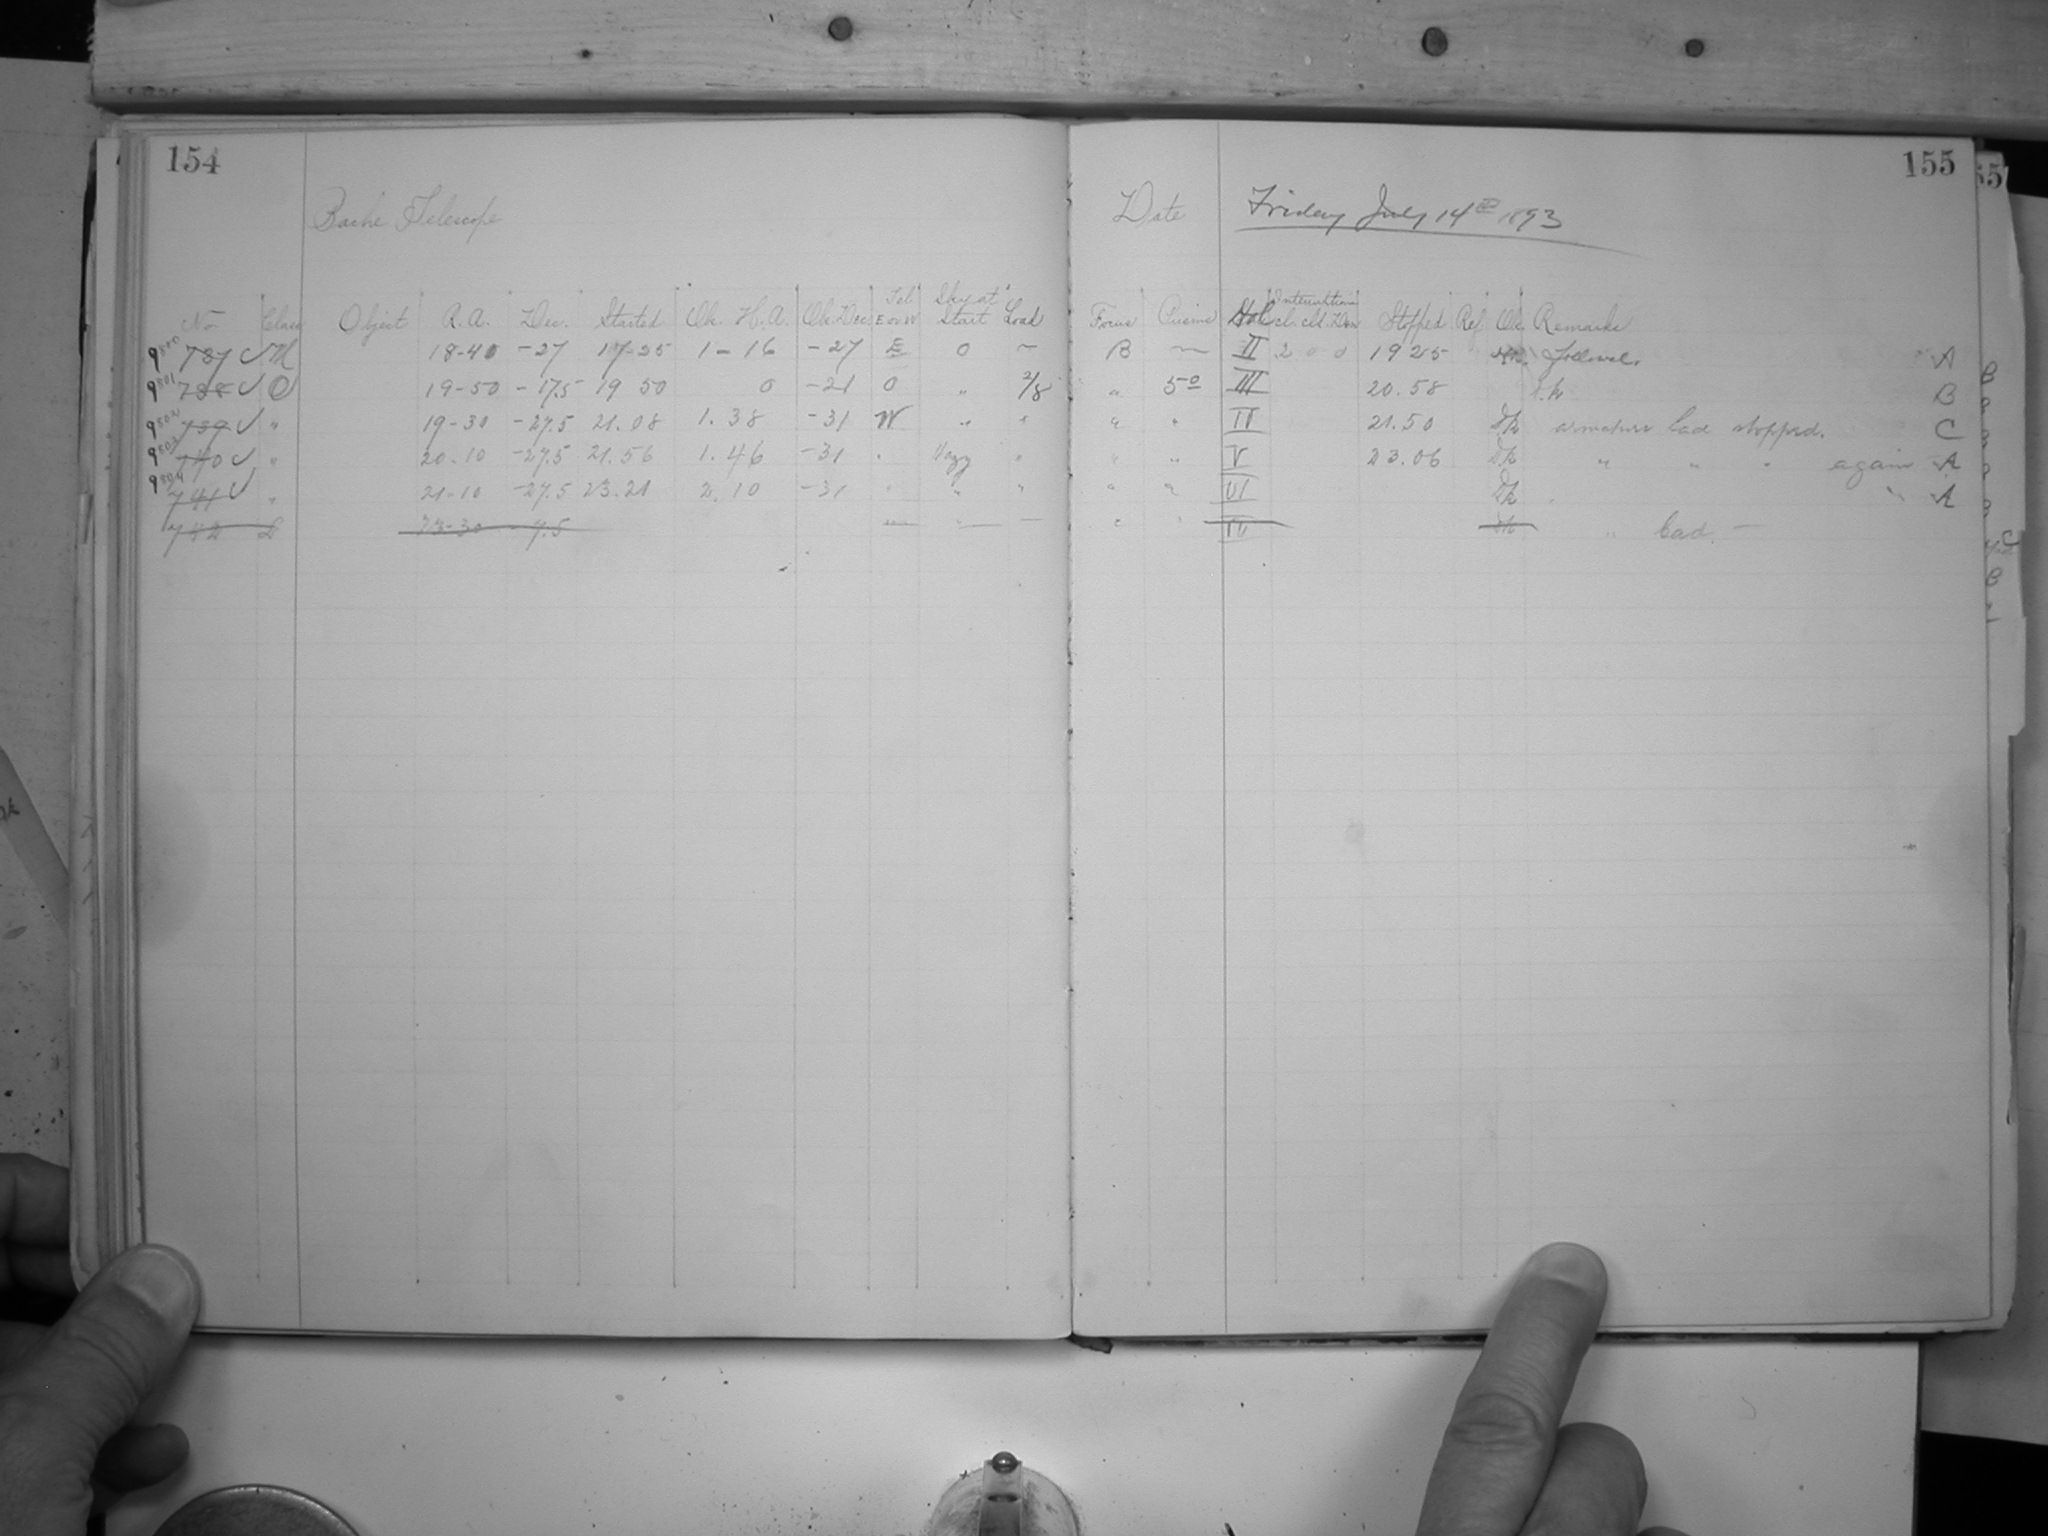 154
Bache Telescope
No Class Object R.A. Dec. Started Ck. H.A. Ck. Dec Tel E or W Sky at Start Load
9800 737 ✓ M 18-40 -27 17-25 1-16 -27 E 0 ~
9801 738 ✓ O 19-50 -17.5 19 50 0 -21 0 " 2/8
9802 739 ✓ " 19-30 -27.5 21.08 1.38 -31 W " "
9803 740 ✓ " 20-10 -27.5 21.56 1.46 -31 " Hazy "
9804 741 ✓ " 21-10 -27.5 23.21 2.10 -31 " " "
742
155
Date Friday July 14th 1893
Focus Prisms Hol Stopped Ref Ck. Remarks
B ~ II 2 0 0 1925 Followed. A
" 5º III 20.58 B
" " IV 21.50 armature bad stopped. C
" " V 23.06 " " " again A
" " VI " A
" " IV " bad. —